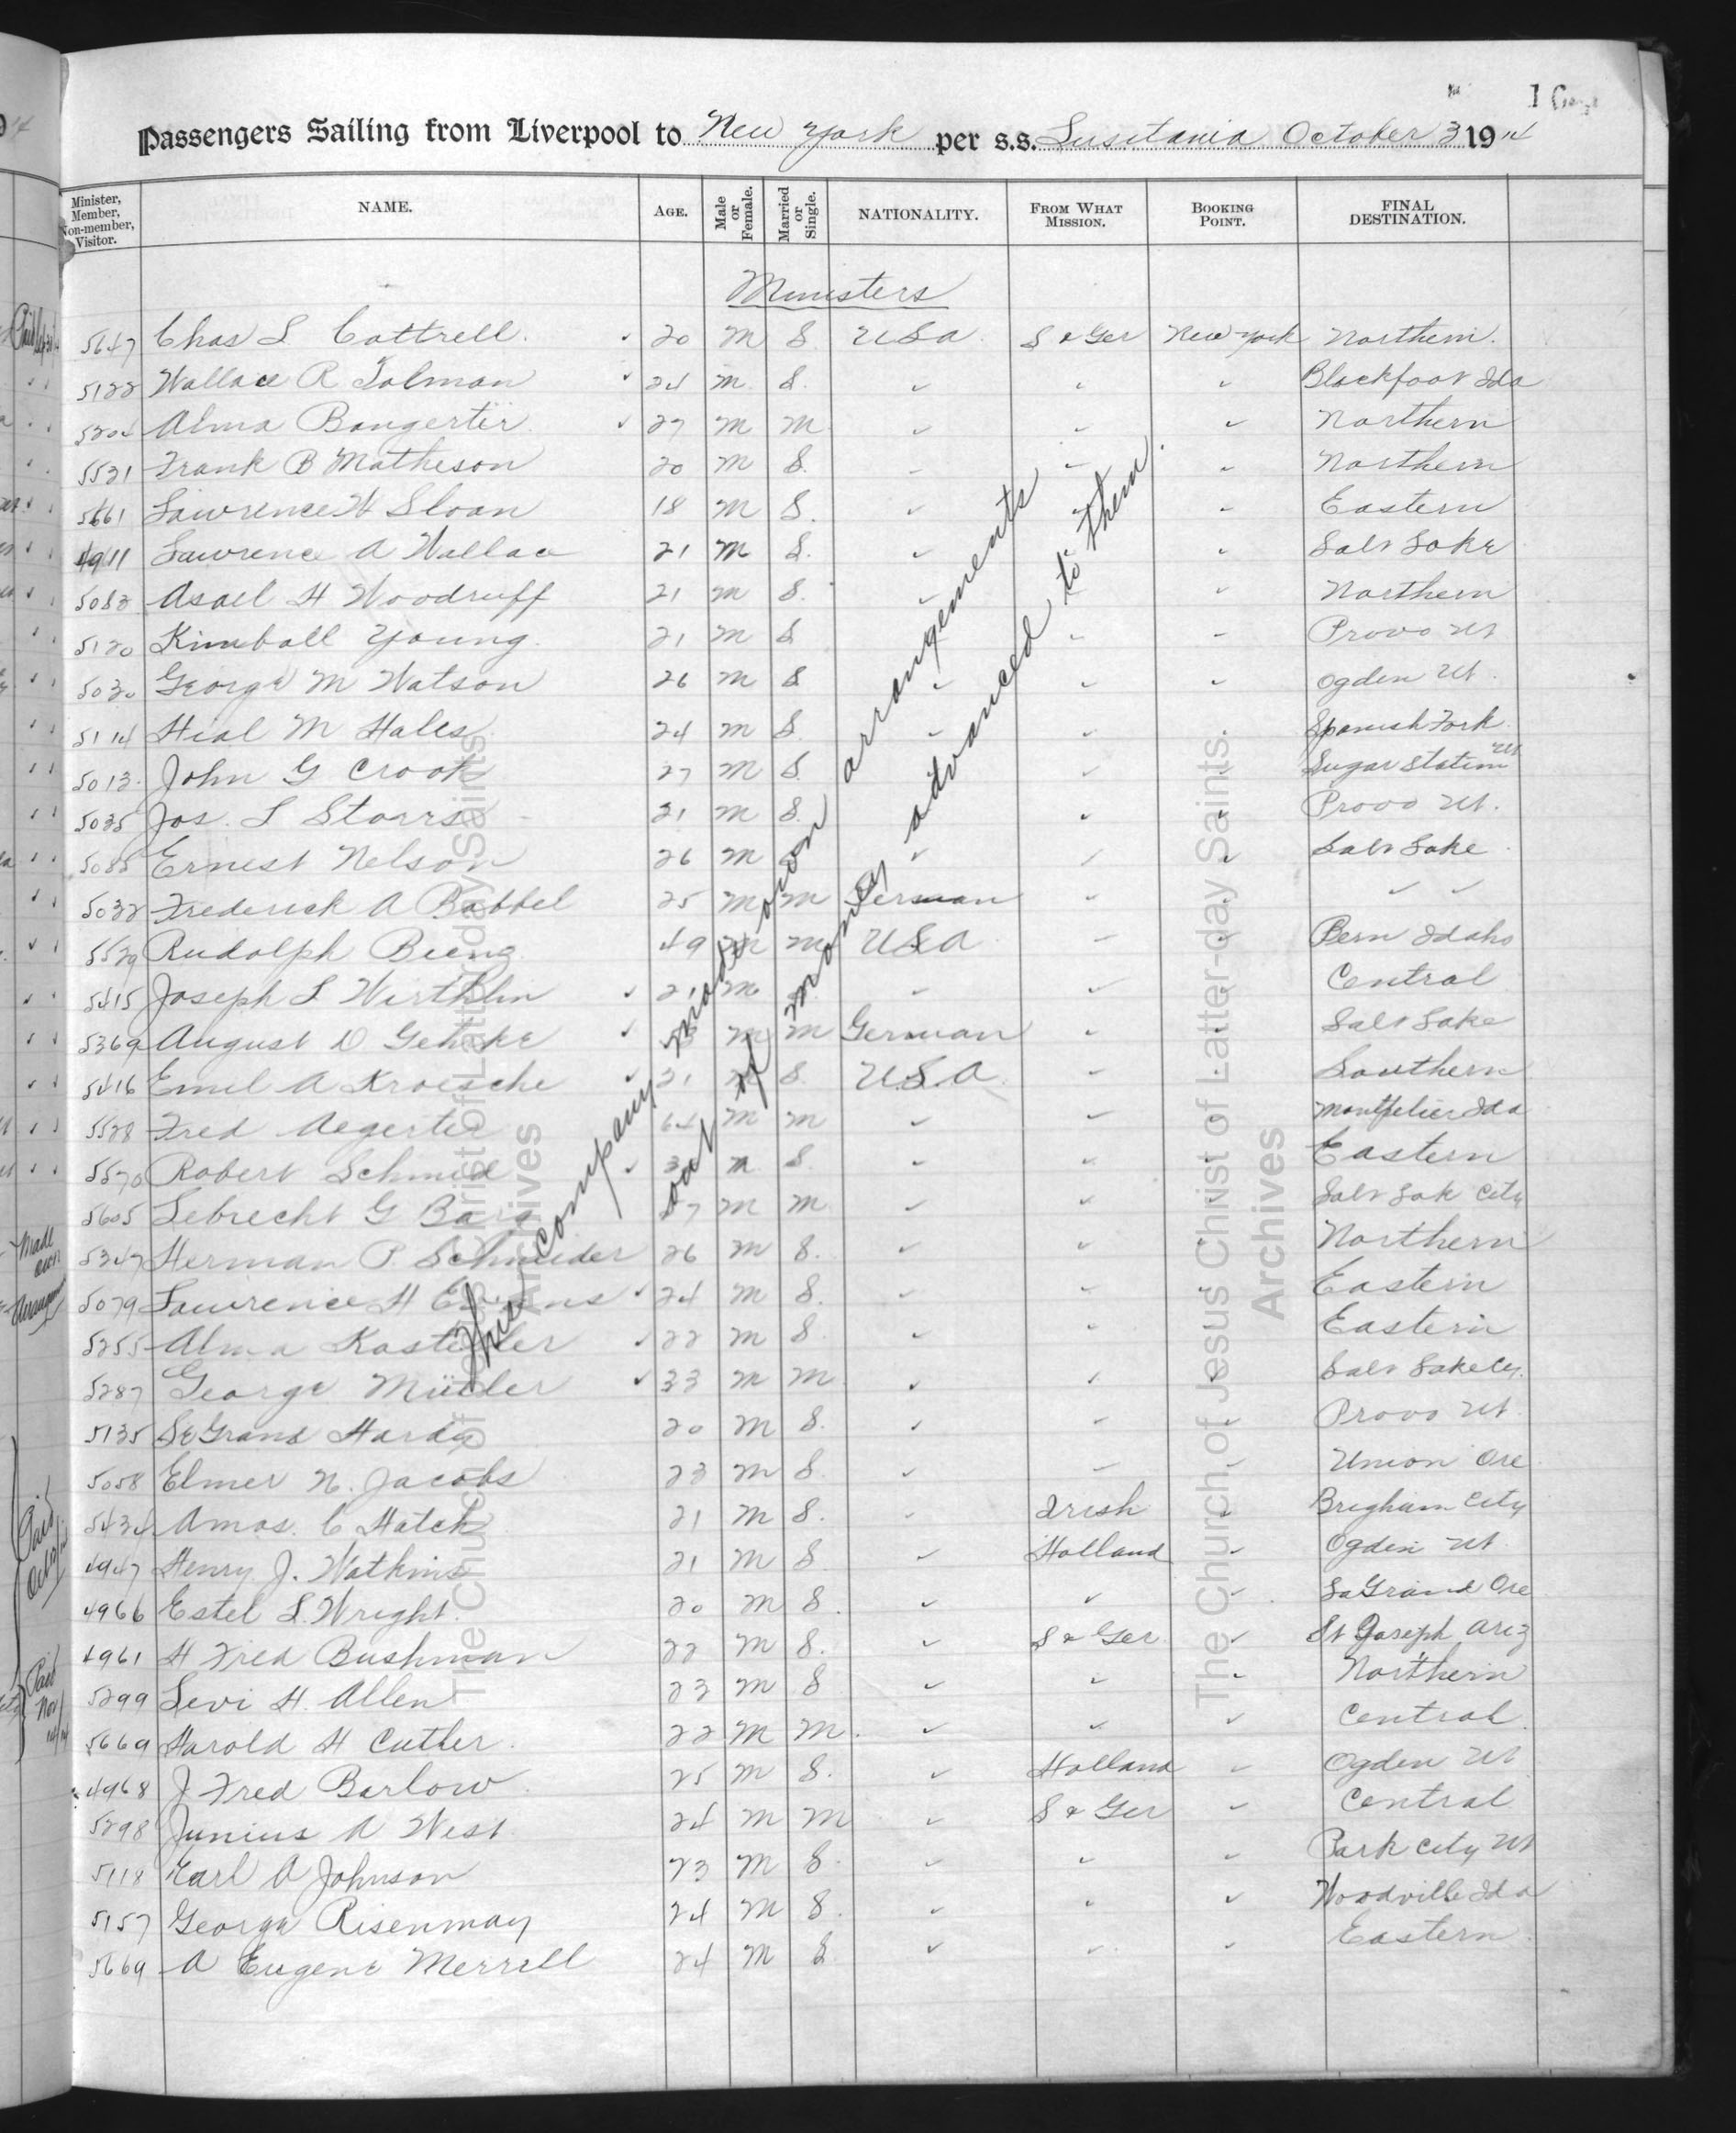 Passengers Sailing from Liverpool to New York per s.s. Lusitania October 3 1914
Minister, Member, Non-member, Visitor. NAME. AGE. Male or Female. Married or Single. NATIONALITY. FROM WHAT MISSION. BOOKING POINT. FINAL DESTINATION.
Ministers
5647 Chas L Cottrell. 20 M S. USA S & Ger New York Northern.
5122 Wallace R Tolman 24 M. S. Blackfoot Ida
Alma Bangerter 27 M M Northern
5521 Frank B Matheson 20 M S. Northern
5661 Lawrence W Sloan 18 M S. Eastern
4911 Lawrence A Wallace 21 M S. Salt Lake
5083 Asael H Woodruff 21 M S. Northern
5120 Kimball Young. 21 M S Provo Ut
5030 George M Watson 26 M S Ogden Ut.
5114 Hial M Hales 24 M S. Spanish Fork Ut
5013. John G Crook 27 M S. Sugar Station
5035 Jos. L Storrs 21 M S. Provo Ut.
5085 Ernest Nelson 26 M Salt Lake
5032 Frederick A Babbel 25 M M German
5529 Rudolph Bieng 49 M M USA Bern Idaho
5415 Joseph L Wirthlin 21 M Central
5369 August D Gehrke M M German Salt Lake
5416 Emil A Kroesche 21 M S U.S.A Southern
5528 Fred Aegerter 64 M M Montpelier Ida
5570 Robert Schmid M S Eastern
5605 Lebrecht G Barg M M Salt Lak City
5347 Herman P. Schneider 26 M S. Northern
5079 Lawrence H Evans 24 M S. Eastern
5255 Alma Kasteler 22 M S. Eastern
5287 George Müller 33 M M Salt Lake Cy.
5135 LeGrand Hardy 20 M S. Provo Ut
5058 Elmer N. Jacobs 23 M S Union Ore
5434 Amos. C Hatch 21 M S. Irish Brigham City
4947 Henry J. Watkins 21 M S Holland Ogden Ut
4966 Estel L. Wright. 20 M S. LaGrand Ore
4961 H Fred Bushman 22 M S. S & Ger St Joseph Ariz
5299 Levi H. Allen 23 M S Northern
5669 Harold H Cutler. 22 M M. Central
4968 J Fred Barlow 25 M S. Holland Ogden Ut
5298 Junius A West 24 M M S & Ger Central
5118 Earl A Johnson 23 M S. Park City Ut
5157 George Risenmay 24 M S. Woodville Ida
5669 A Eugene Merrell 24 M S Eastern
This company made own arrangements
out of money advanced to them.
Made own Arrangements
Paid Oct
Paid Nov
The Church of Jesus Christ of Latter-day Saints.
Archives
The Church of Jesus Christ of Latter-day Saints.
Archives